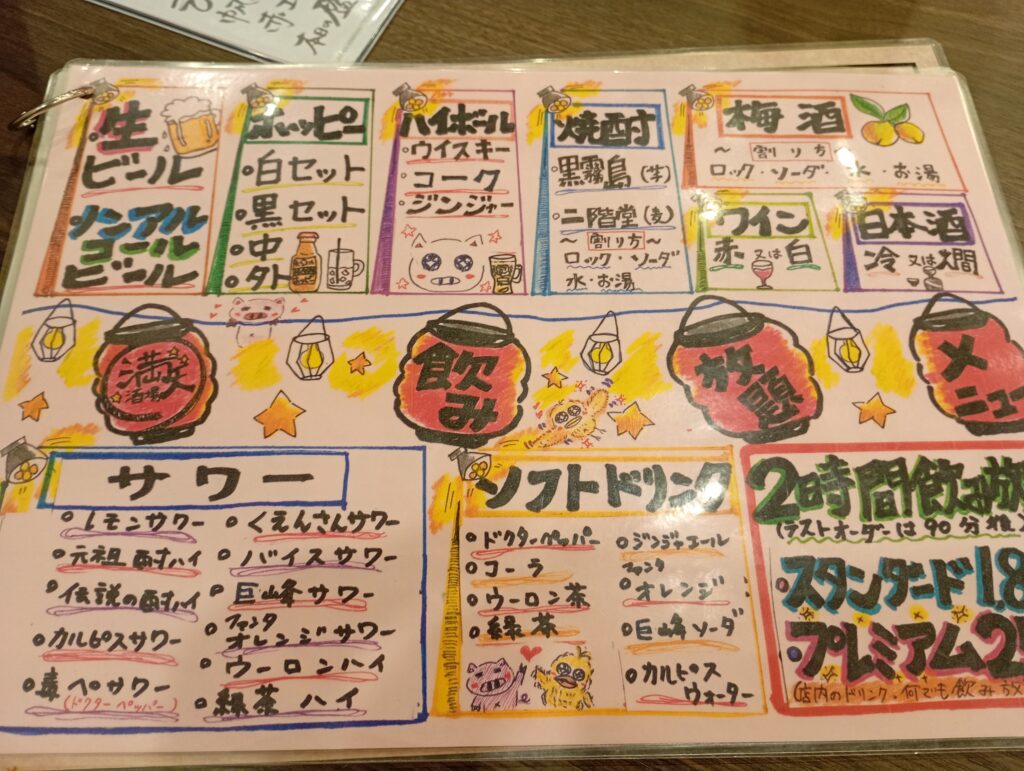 生
ビール
ノンアル
コール
ビール
ホッピー
白セット
黒セット
中
外
ハイボール
ウイスキー
コーク
ジンジャー
焼酎
黒霧島(芋)
二階堂(麦)
〜割り方〜
ロック・ソーダ
水・お湯
梅酒
〜割り方
ロック・ソーダ・水・お湯
ワイン
赤又は白
日本酒
冷又は燗
満天
酒場
飲み
放題
メニュー
サワー
レモンサワー
元祖酎ハイ
伝説の酎ハイ
カルピスサワー
毒ペサワー
(ドクターペッパー)
くえんさんサワー
バイスサワー
巨峰サワー
ファンタ
オレンジサワー
ウーロンハイ
緑茶ハイ
ソフトドリンク
ドクターペッパー
コーラ
ウーロン茶
緑茶
ジンジャエール
ファンタ
オレンジ
巨峰ソーダ
カルピス
ウォーター
2時間飲み放
(ラストオーダーは90分後)
スタンダード1.8
プレミアム2.
(店内のドリンク、何でも飲み放